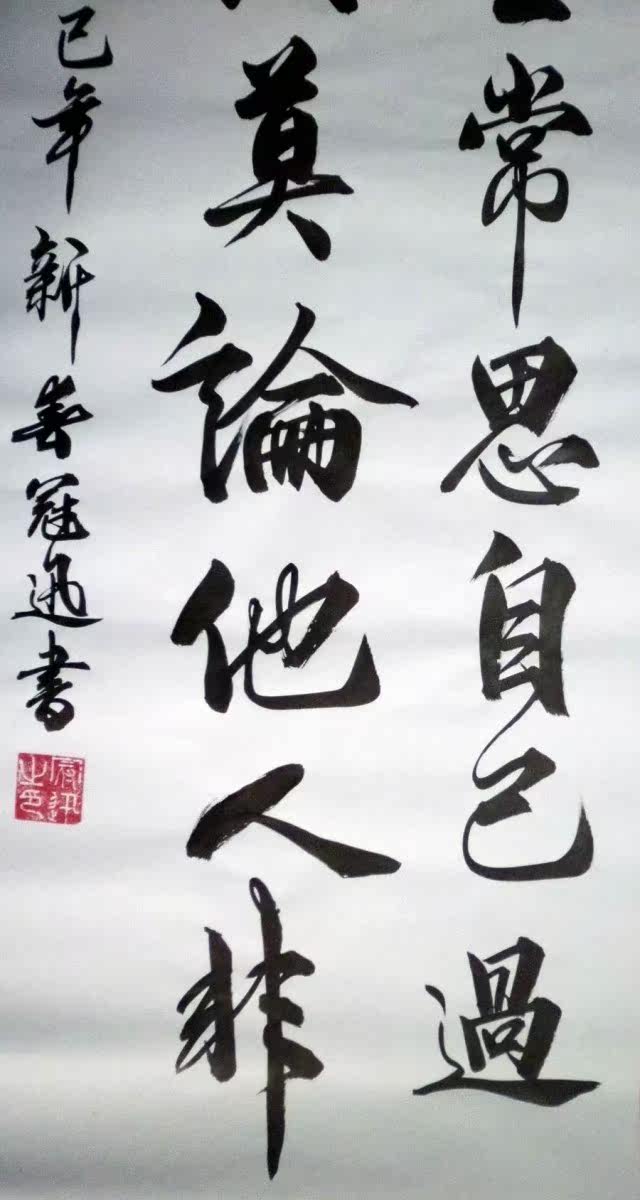 常思自己過
莫論他人非
巳年新春冠迅書